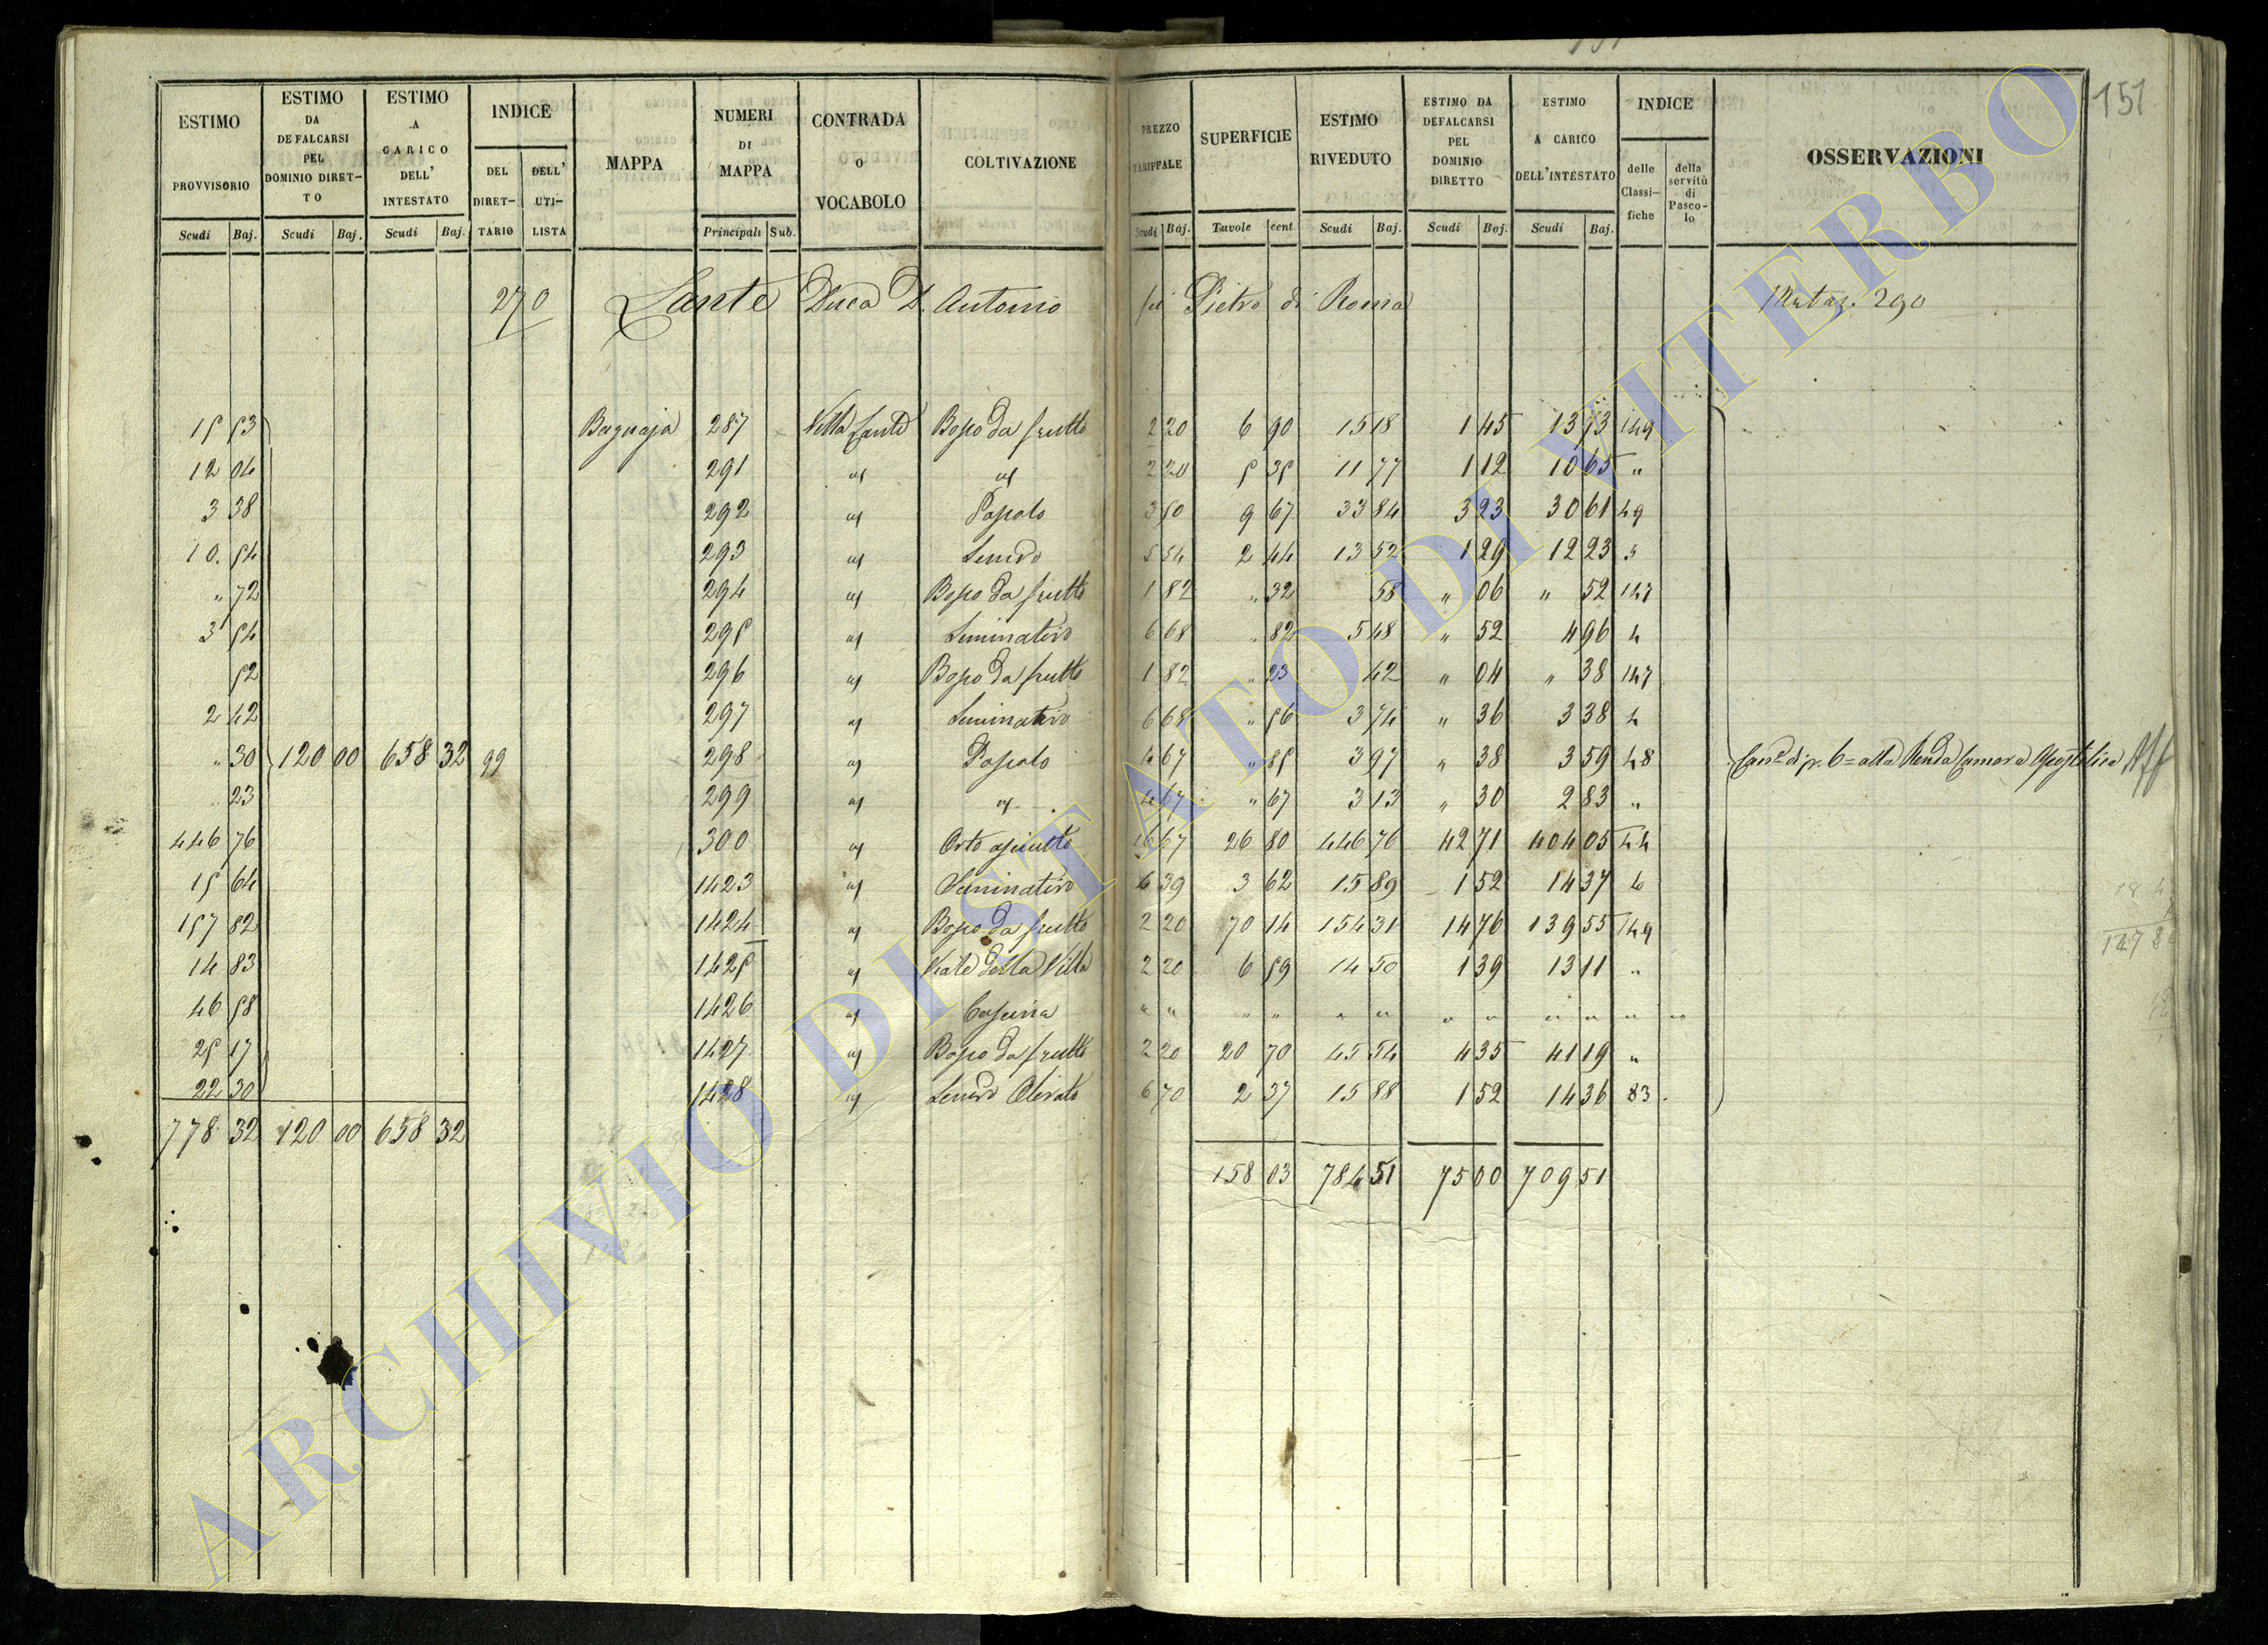 151
ESTIMO PROVVISORIO | ESTIMO DA DEFALCARSI PEL DOMINIO DIRETTO | ESTIMO A CARICO DELL' INTESTATO | INDICE | MAPPA | NUMERI DI MAPPA | CONTRADA O VOCABOLO | COLTIVAZIONE | PREZZO TARIFFALE | SUPERFICIE | ESTIMO RIVEDUTO | ESTIMO DA DEFALCARSI PEL DOMINIO DIRETTO | ESTIMO A CARICO DELL'INTESTATO | INDICE | OSSERVAZIONI
DEL DIRETTARIO | DELL' UTILISTA | delle Classifiche | della servitù di Pascolo
Scudi | Baj. | Scudi | Baj. | Scudi | Baj. | Principali | Sub. | Scudi | Baj. | Tavole | cent. | Scudi | Baj. | Scudi | Baj. | Scudi | Baj.
270 Lante Duca D. Antonio fù Pietro di Roma Mutaz. 290
15 53 Bagnaja 287 Villa Lante Bosco da frutto 2 20 6 90 15 18 1 45 13 73 149
12 04 291 " " 2 20 5 35 11 77 1 12 10 65 "
3 38 292 " Pascolo 3 50 9 67 33 84 3 23 30 61 49
10 54 293 " 5 54 2 44 13 52 1 29 12 23 5
" 72 294 " Bosco da frutto 1 82 " 32 58 " 06 " 52 147
3 54 295 " Seminativo 6 68 " 82 5 48 " 52 4 96 4
52 296 " Bosco da frutto 1 82 " 23 42 " 04 " 38 147
2 42 297 " Seminativo 6 68 " 56 3 74 " 36 3 38 4
" 30 120 00 658 32 99 298 " Pascolo 4 67 " 85 3 97 " 38 3 59 48 alla Camera Apostolica
" 23 299 " " 4 67 " 67 3 13 " 30 2 83 "
446 76 300 " Orto asciutto 16 67 26 80 446 76 42 71 404 05 44
15 64 1423 " Seminativo 4 39 3 62 15 89 1 52 14 37 6
157 82 1424 " Bosco da frutto 2 20 70 14 154 31 14 76 139 55 149
14 83 1425 " Viale della Villa 2 20 6 59 14 50 1 39 13 11 "
46 58 1426 " Cascina " " " " " " " " " " " "
25 17 1427 " Bosco da frutto 2 20 20 70 45 54 4 35 41 19 "
22 30 1428 " Olivato 6 70 2 37 15 88 1 52 14 36 83
778 32 120 00 658 32
158 03 784 51 75 00 709 51
ARCHIVIO DI STATO DI VITERBO